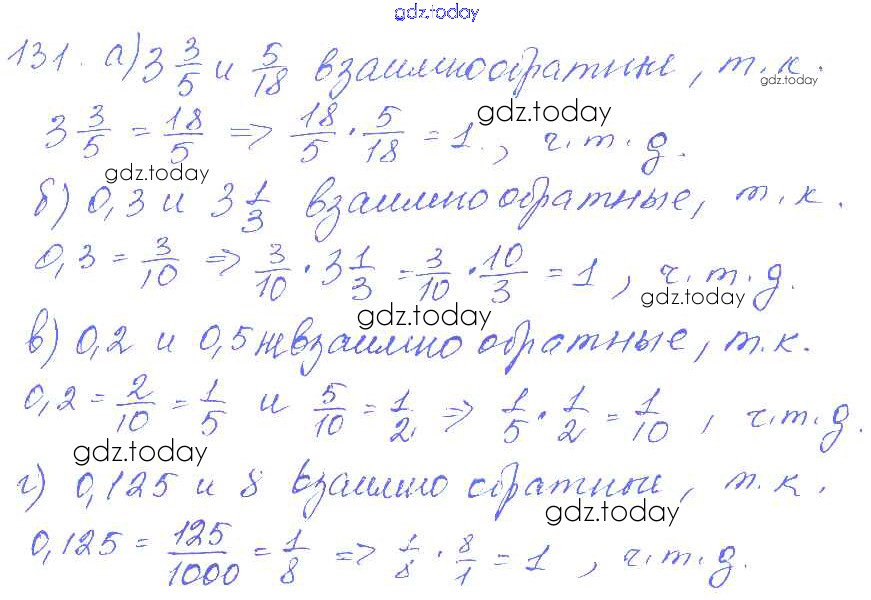 gdz.today
131. а) 3 3/5 и 5/18 взаимнообратные, т.к.
gdz.today
3 3/5 = 18/5 => 18/5 · 5/18 = 1., ч.т.д.
gdz.today
gdz.today
б) 0,3 и 3 1/3 взаимно обратные, т.к.
0,3 = 3/10 => 3/10 · 3 1/3 = 3/10 · 10/3 = 1, ч.т.д.
gdz.today
gdz.today
в) 0,2 и 0,5 не взаимно обратные, т.к.
0,2 = 2/10 = 1/5 и 5/10 = 1/2 => 1/5 · 1/2 = 1/10, ч.т.д.
gdz.today
г) 0,125 и 8 взаимно обратные, т.к.
gdz.today
0,125 = 125/1000 = 1/8 => 1/8 · 8/1 = 1, ч.т.д.